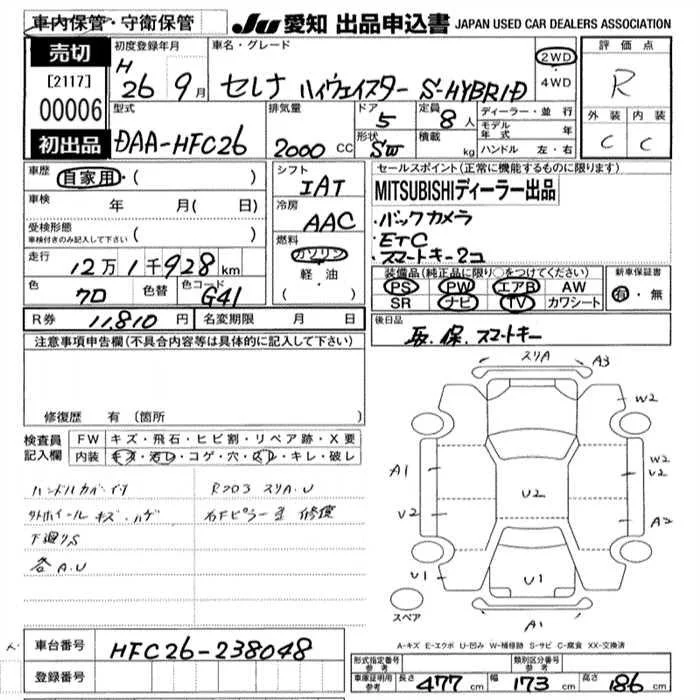 車内保管・守衛保管 JU 愛知 出品申込書 JAPAN USED CAR DEALERS ASSOCIATION
売切 [2117] 00006 初出品
初度登録年月 H 26 9月
車名・グレード セレナ ハイウェイスター S-HYBRID
2WD ・ 4WD
評価点 R
外装 C 内装 C
型式 DAA-HFC26
排気量 2000 CC
ドア 5 形状 SW
定員 8 人 積載 kg
ディーラー・並行
モデル年式 年
ハンドル 左・右
車歴 自家用・( )
車検 年 月( 日)
受検形態 ( )
車検付きのみ記入して下さい
走行 12万1千928km
色 クロ 色替 色コード G41
シフト IAT
冷房 AAC
燃料 ガソリン・軽・油 ・( )
セールスポイント(正常に機能するものに限ります)
MITSUBISHIディーラー出品
・バックカメラ
・ETC
・スマートキー2コ
装備品(純正品に限り○をつけてください)
PS PW エアB AW
SR ナビ TV カワシート
新車保証書 有・無
R券 11,810 円 名変期限 月 日
後日品 取.保.スマートキー
注意事項申告欄(不具合内容等は具体的に記入して下さい)
修復歴 有 〔箇所 〕
検査員記入欄
FW キズ・飛石・ヒビ割・リペア跡・X要
内装 キズ・汚レ・コゲ・穴・スレ・キレ・破レ
ハンドルカバー付 R203 スリA.U
タイヤホイールキズ.ハゲ 右Fピラー歪 修復
下廻りS
各A.U
スリA A3
W2
A1 W2
U2
U2 U2 A2
U1 U1
スペア A1
A-キズ E-エクボ U-凹み W-補修跡 S-サビ C-腐食 XX-交換済
車台番号 HFC26-238048
登録番号
形式指定番号参考 類別区分番号参考
車庫証明用参考 長さ 477 cm 幅 173 cm 高さ 186 cm